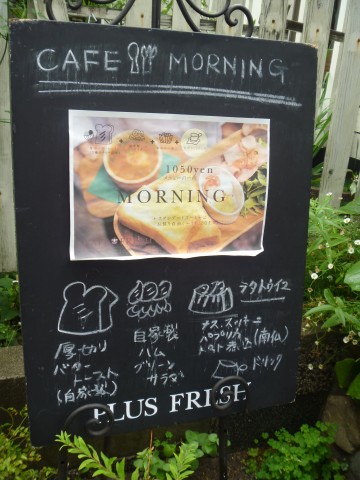 CAFE MORNING
1050yen
MORNING
ラタトゥイユ
厚切り
バター
トースト
(自家製)
自家製
ハム
グリーン
サラダ
ナス、ズッキーニ
パプリカ
トマト煮込(南仏)
ドリンク
PLUS FRESH